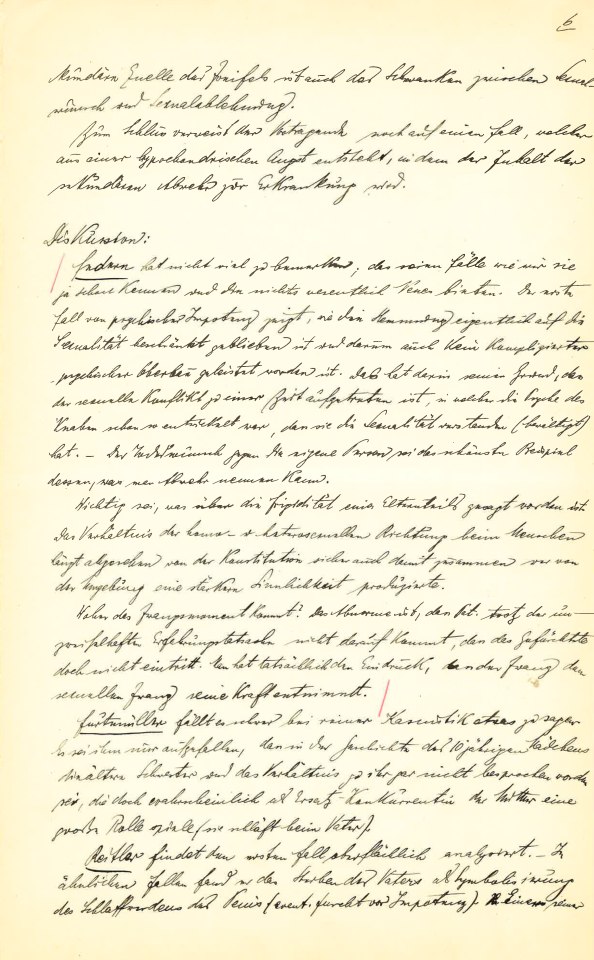 6
sekundäre Quelle des Zweifels ist auch das Schwanken zwischen Sexual-
wunsch und Sexualablehnung.
Zum Schluss verweist der Vortragende noch auf einen Fall, welcher
aus einer hypochondrischen Angst entsteht, in dem der Inhalt der
sekundären Abwehr zur Erkrankung wird.
Diskussion:
Federn hat nicht viel zu bemerken; da seine Fälle wie wir sie
ja schon kennen und die nichts wesentlich Neues bieten. Der erste
Fall von psychischer Impotenz zeigt, wie die Hemmung eigentlich auf die
Sexualität beschränkt geblieben ist und darum auch kein komplizierter
psychischer Überbau geleistet worden ist. Das hat darin seinen Grund, dass
der sexuelle Konflikt zu einer Zeit aufgetreten ist, in welcher die Psyche des
Knaben schon so entwickelt war, dass sie die Sexualität verstanden (bewältigt)
hat. – Der Todeswunsch gegen die eigene Person sei das schönste Beispiel
dessen, was man Abwehr nennen kann.
Richtig sei, was über die Frigidität eines Elternteils gesagt worden ist.
Das Verhältnis der homo- u. heterosexuellen Richtung beim Menschen
hängt abgesehen von der Konstitution sicher auch damit zusammen wer von
der Umgebung eine stärkere Sinnlichkeit produzierte.
Woher das Zwangsmoment kommt? Das Abnorme ist, dass Pat. trotz der un-
zweifelhaften Erfahrungstatsache nicht darauf kommt, dass das Gefürchtete
doch nicht eintritt. Man hat tatsächlich den Eindruck, dass der Zwang dem
sexuellen Zwang seine Kraft entnimmt.
Furtmüller fällt es schwer bei reiner Kasuistik etwas zu sagen.
Es sei ihm nur aufgefallen, dass in der Geschichte des 10jährigen Mädchens
die ältere Schwester und das Verhältnis zu ihr gar nicht besprochen worden
sei, die doch wahrscheinlich als Ersatz-Konkurrentin der Mutter eine
grosse Rolle spiele (sie schläft beim Vater).
Reitler findet den ersten Fall oberflächlich analysiert. – In
ähnlichen Fällen fand er das Sterben des Vaters als Symbolisierung
des Schlaffwerdens des Penis (event. Furcht vor Impotenz). Einer seiner